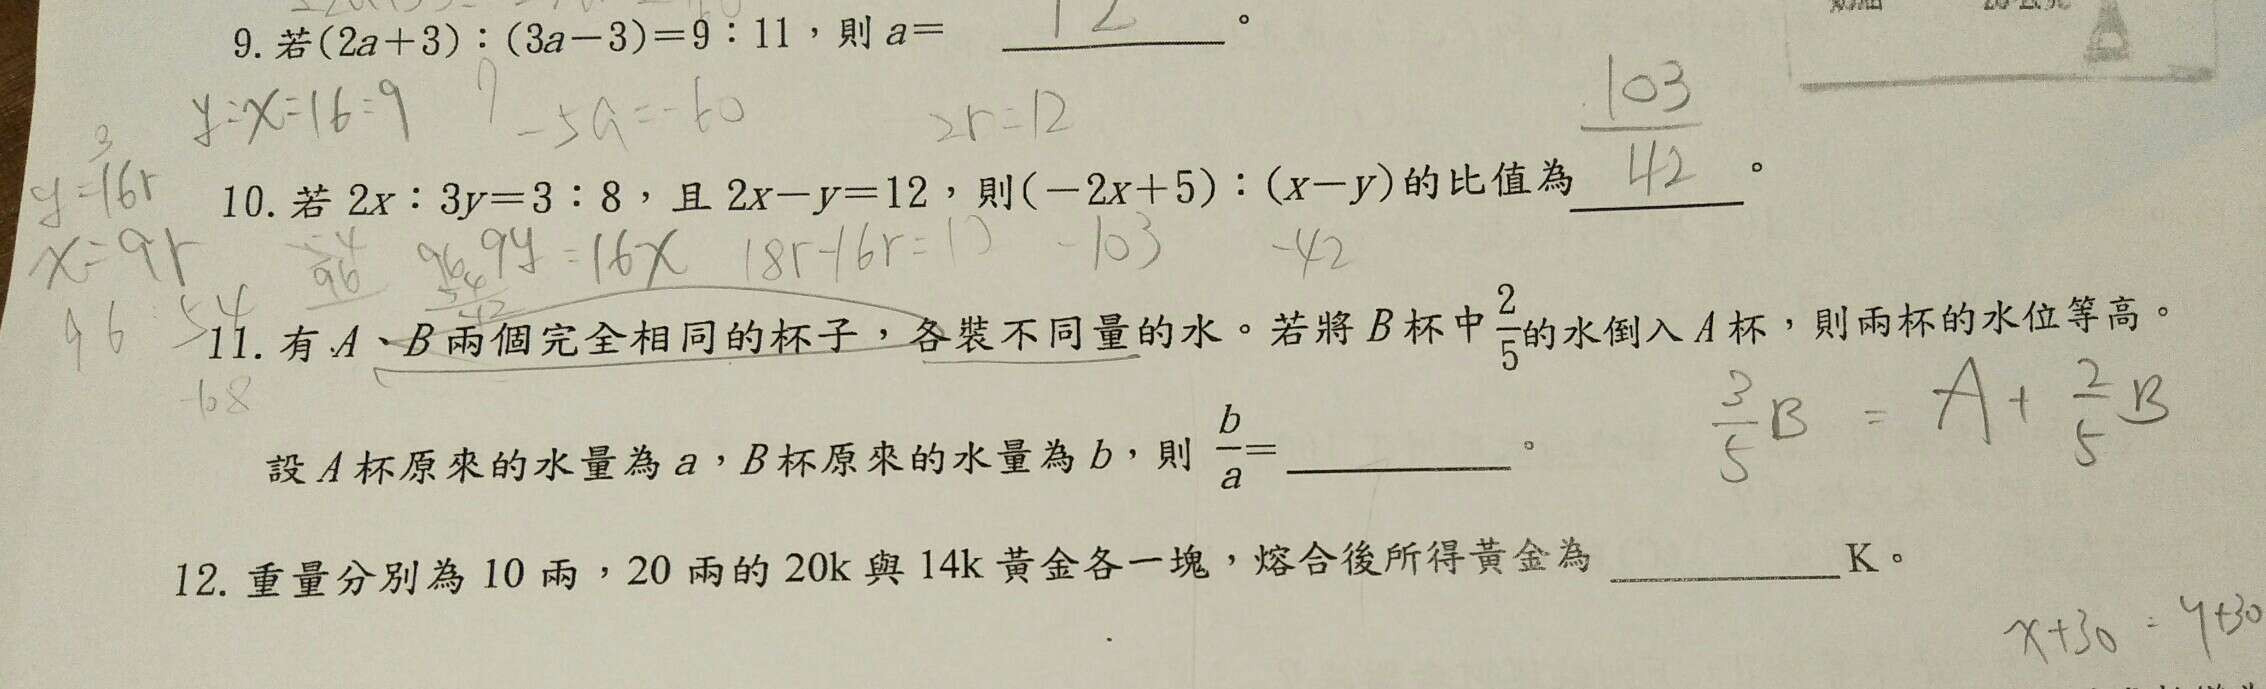 9. 若(2a+3):(3a-3)=9:11,則 a= 12 。
y:x=16:9 -5a=-60 2r=12
103
y=16r
10. 若 2x:3y=3:8,且 2x-y=12,則(-2x+5):(x-y)的比值為 42 。
x=9r 96 9y=16x 18r-16r=12 -103 -42
96 54
11. 有 A、B 兩個完全相同的杯子,各裝不同量的水。若將 B 杯中 2/5 的水倒入 A 杯,則兩杯的水位等高。
3/5 B = A + 2/5 B
設 A 杯原來的水量為 a,B 杯原來的水量為 b,則 b/a= 。
12. 重量分別為 10 兩,20 兩的 20k 與 14k 黃金各一塊,熔合後所得黃金為 K。
x+30 : y+30